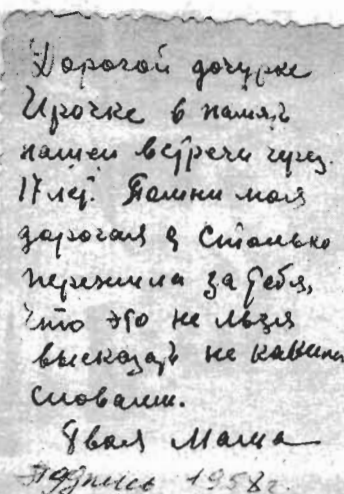 Дорогой дочурке
Ирочке в память
нашей встречи через
17 лет. Помни моя
дорогая я столько
пережила за тебя,
что это не льзя
высказать не какими
словами.
Твоя Мама
подпись 1958 г.